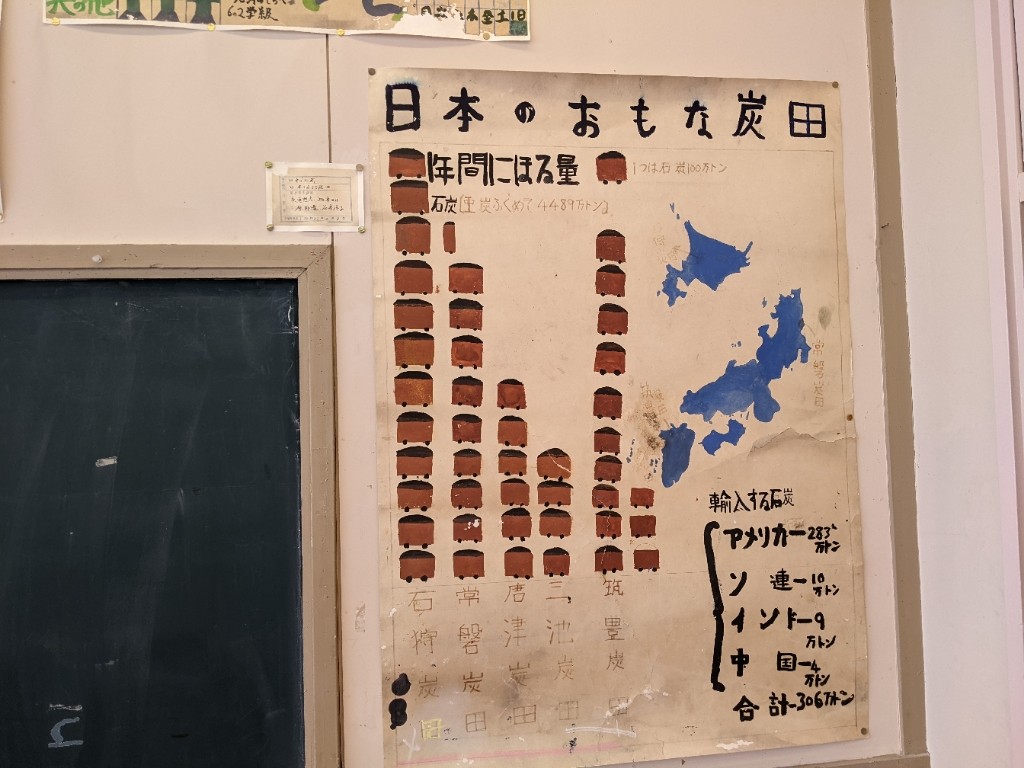 6の2学級
日本のおもな炭田
1年間にほる量
1つは石炭100万トン
石炭(亜炭ふくめて4489万トン)
常磐炭田
輸入する石炭
アメリカー283万トン
ソ連ー10万トン
インドー9万トン
中国ー4万トン
合計ー306万トン
石狩炭田
常磐炭田
唐津炭田
三池炭田
筑豊炭田